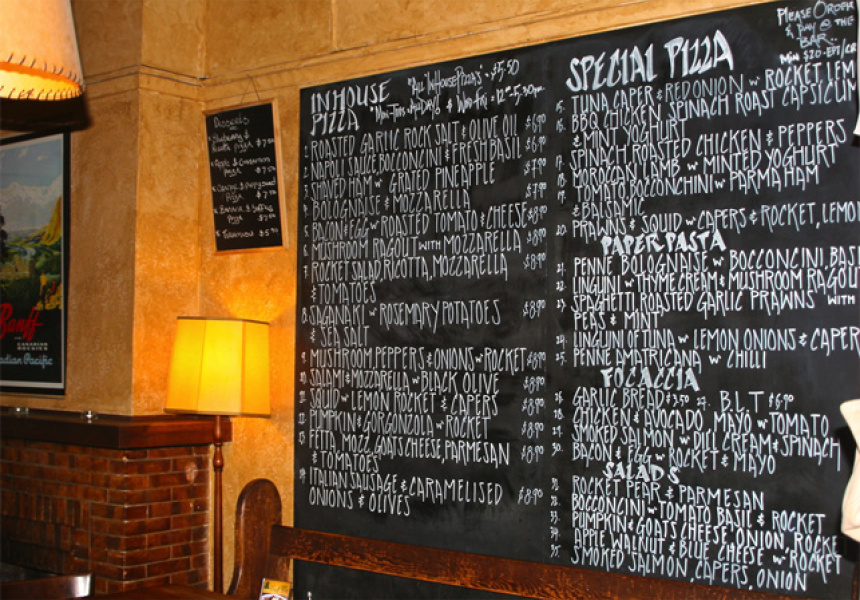 Banff
CANADIAN
ROCKIES
Canadian Pacific
DESSERTS
PIZZA $7.50
APPLE & CINNAMON
PIZZA $7.50
PIZZA
BANANA &
PIZZA
TIRAMISU $5.90
INHOUSE
PIZZA
"ALL INHOUSE PIZZA'S" $5.50
MON-TUES ALL DAY & WED-FRI 12-5.30PM
1. ROASTED GARLIC ROCK SALT & OLIVE OIL $6.90
2. NAPOLI SAUCE BOCCONCINI & FRESH BASIL $6.90
3. SHAVED HAM W' GRATED PINEAPPLE $7.90
4. BOLOGNAISE & MOZZARELLA $7.90
5. BACON & EGG W' ROASTED TOMATO & CHEESE $8.90
6. MUSHROOM RAGOUT WITH MOZZARELLA $8.90
7. ROCKET SALAD RICOTTA, MOZZARELLA $8.90
& TOMATOES
8. SAGANAKI W' ROSEMARY POTATOES $8.90
& SEA SALT
9. MUSHROOM, PEPPERS & ONIONS W' ROCKET $8.90
10. SALAMI & MOZZARELLA W' BLACK OLIVE $8.90
11. SQUID W' LEMON ROCKET & CAPERS $8.90
12. PUMPKIN & GORGONZOLA W' ROCKET $8.90
13. FETTA, MOZZ, GOATS CHEESE, PARMESAN $8.90
& TOMATOES
14. ITALIAN SAUSAGE & CARAMELISED $8.90
ONIONS & OLIVES
PLEASE ORDER
& PAY @ THE
BAR..
MIN $20-EFT/CR
SPECIAL PIZZA
15. TUNA CAPER & RED ONION W' ROCKET LEM
16. BBQ CHICKEN SPINACH ROAST CAPSICUM
& MINT YOGHURT
17. SPINACH ROASTED CHICKEN & PEPPERS
18. MOROCAN LAMB W' MINTED YOGHURT
19. TOMATO BOCCONCHINI W' PARMA HAM
& BALSAMIC
20. PRAWNS & SQUID W' CAPERS & ROCKET, LEMON
PAPER PASTA
21. PENNE BOLOGNAISE W' BOCCONCINI, BASI
22. LINGUINI W' THYME CREAM & MUSHROOM RAGOU
23. SPAGHETTI ROASTED GARLIC PRAWNS WITH
PEAS & MINT
24. LINGUINI OF TUNA W' LEMON ONIONS & CAPER
25. PENNE AMATRICANA W' CHILLI
FOCACCIA
26. GARLIC BREAD $3.50 27. B.L.T $6.90
28. CHICKEN & AVOCADO, MAYO W' TOMATO
29. SMOKED SALMON W' DILL CREAM & SPINACH
30. BACON & EGG W' ROCKET & MAYO
SALADS
31. ROCKET PEAR & PARMESAN
32. BOCCONCINI W' TOMATO BASIL & ROCKET
33. PUMPKIN & GOATS CHEESE, ONION, ROCKE
34. APPLE WALNUT & BLUE CHEESE W' ROCKET
35. SMOKED SALMON, CAPERS, ONION